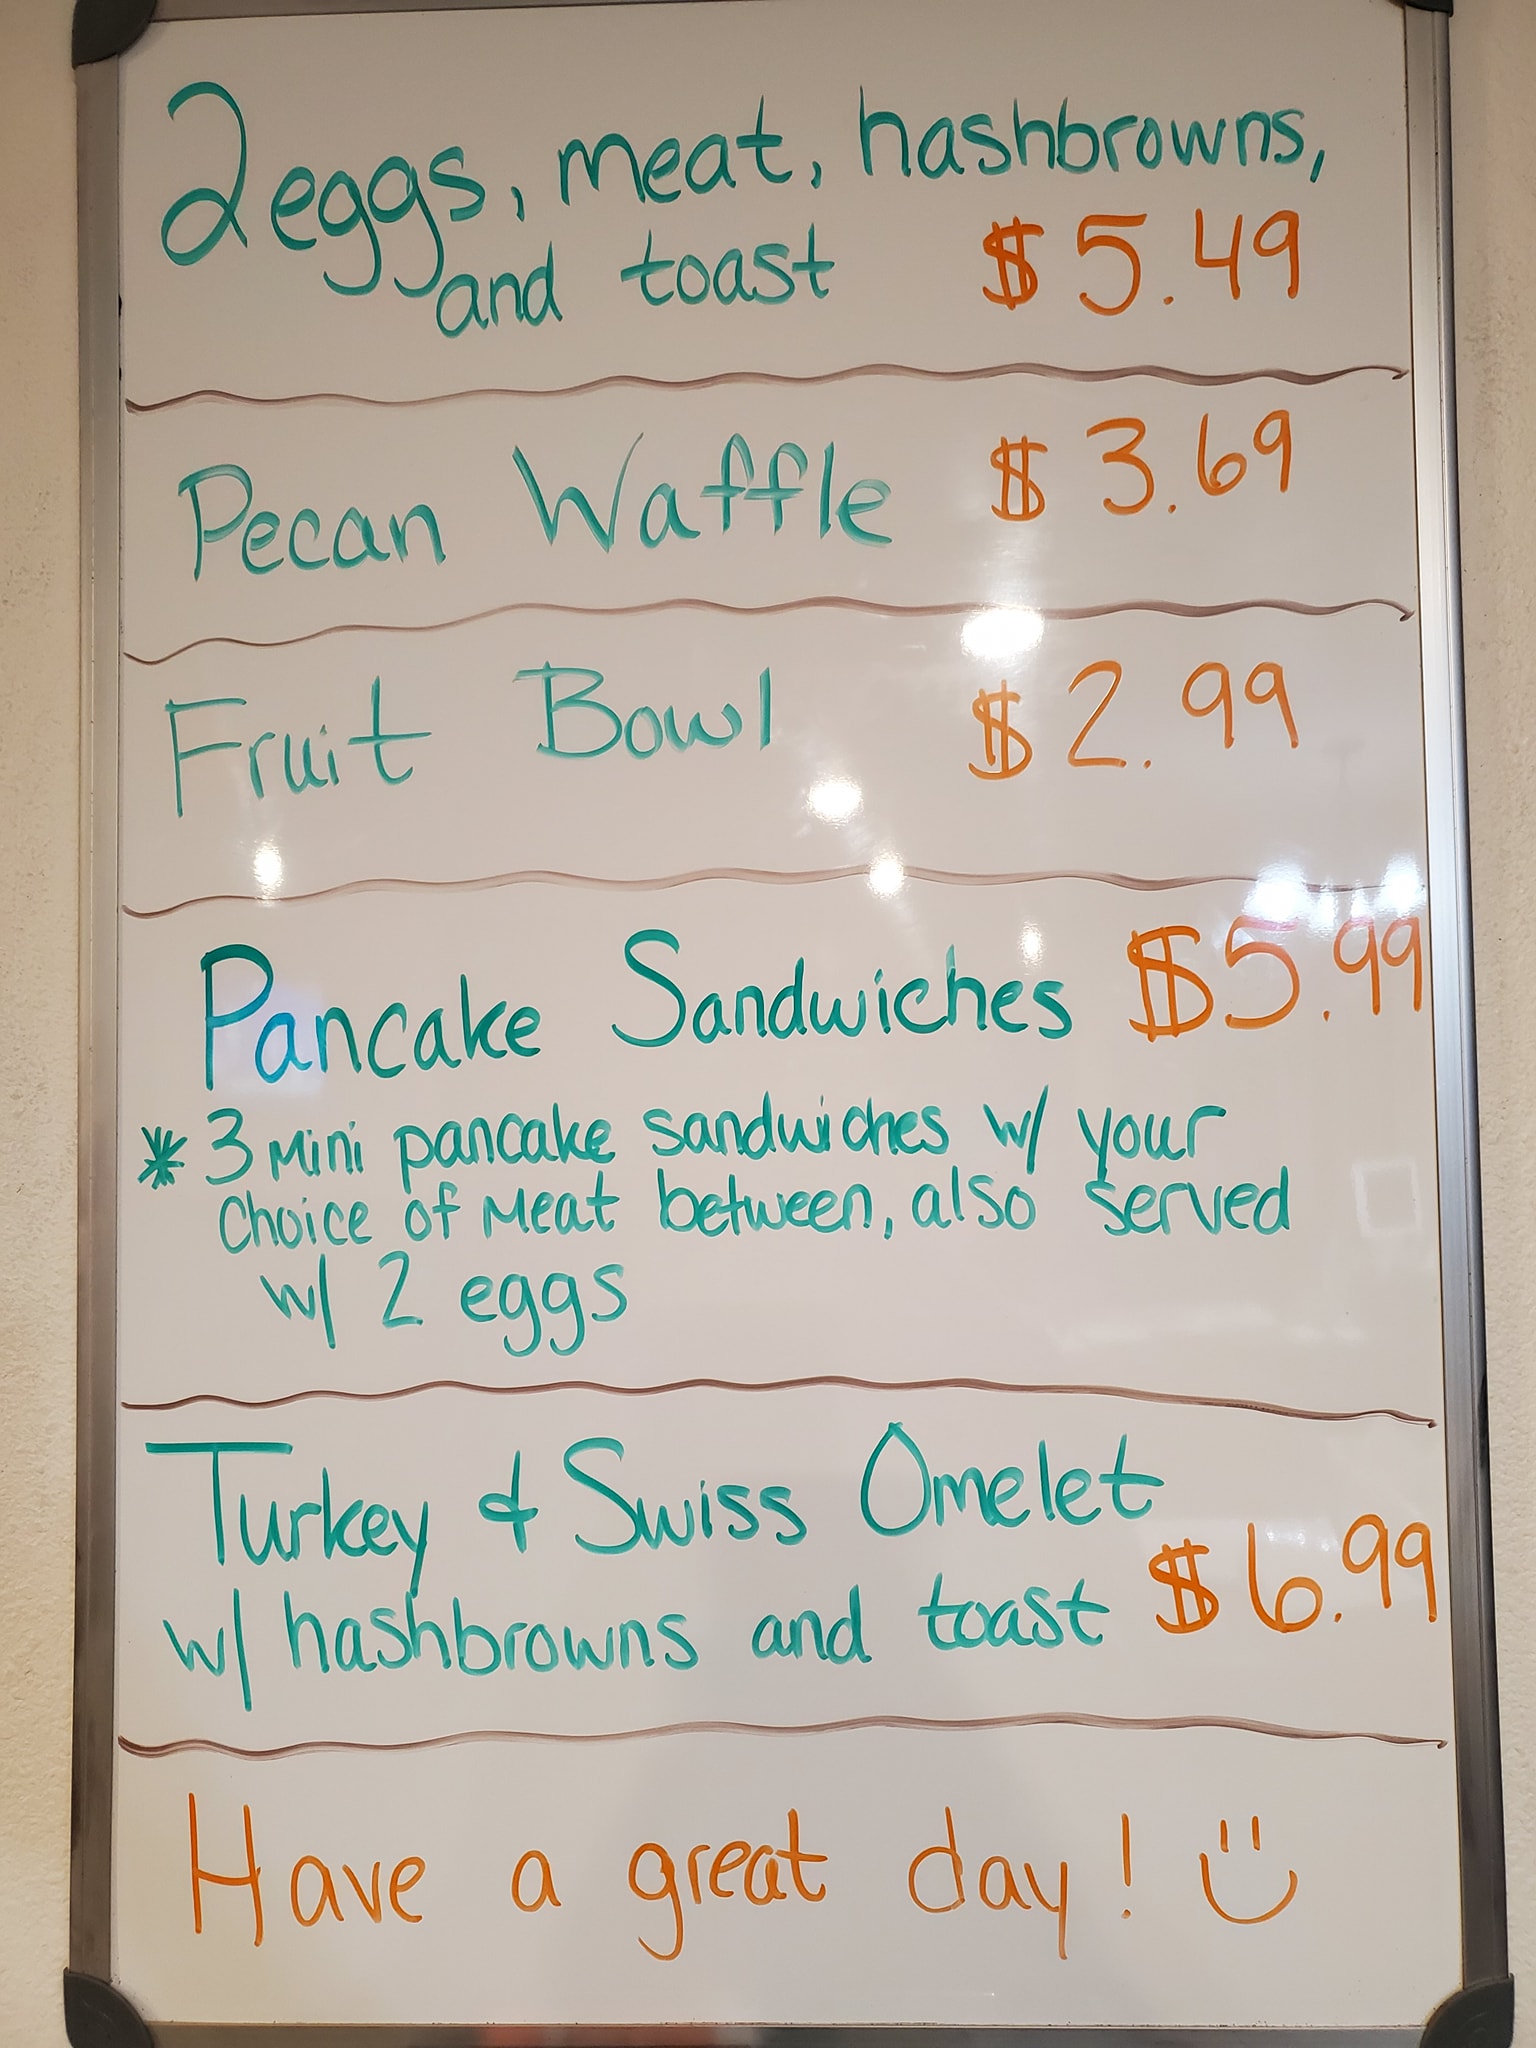 2 eggs, meat, hashbrowns,
and toast $5.49
Pecan Waffle $3.69
Fruit Bowl $2.99
Pancake Sandwiches $5.99
* 3 mini pancake sandwiches w/ your
choice of meat between, also served
w/ 2 eggs
Turkey & Swiss Omelet
w/ hashbrowns and toast $6.99
Have a great day!